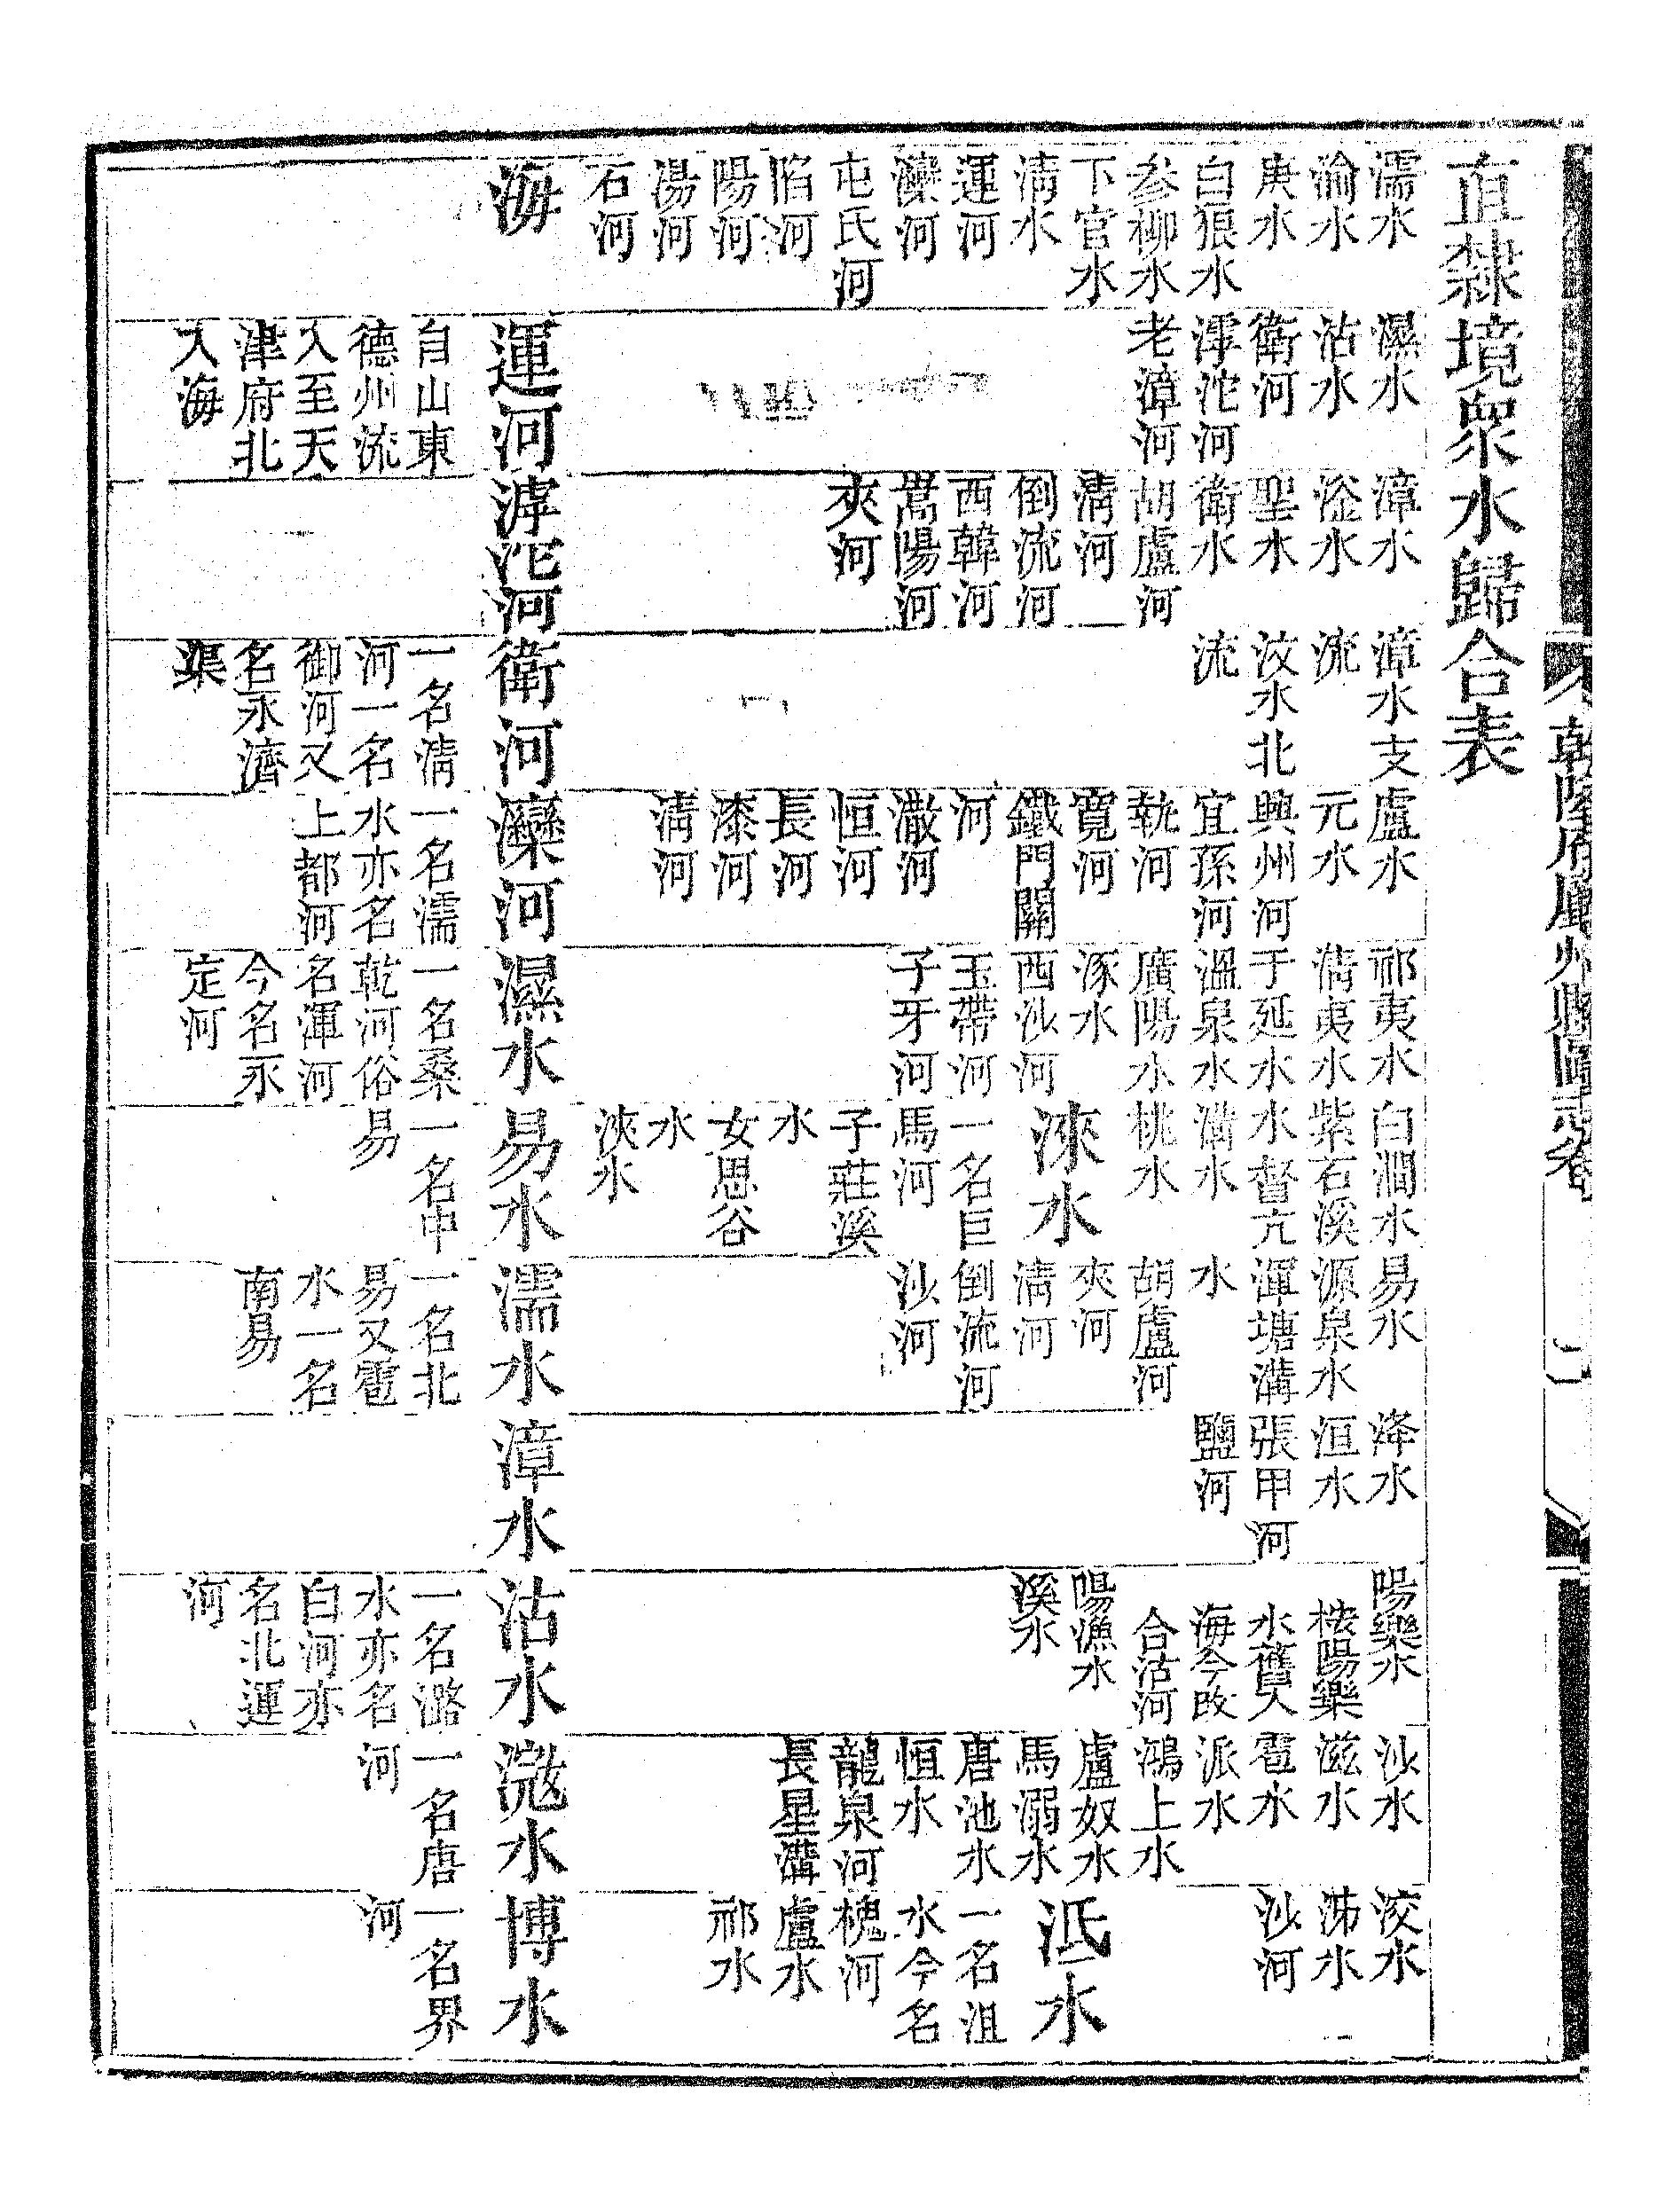 乾隆府廳州縣圖志卷
直隸境眾水歸合表
濡水
渝水
庚水
白狼水
參柳水
下官水
清水
運河
灤河
屯氏河
陷河
陽河
湯河
石河
海
濕水
沽水
衛河
滹沱河
老漳河
運河
自山東
德州流
入至天
津府北
入海
漳水
滏水
聖水
衛水
胡盧河
清河
倒流河
西韓河
蒿陽河
夾河
滹沱河
漳水支
流
汶水北
流
衛河
一名清
河一名
御河又
名永濟
渠
盧水
元水
興州河
宜孫河
執河
寬河
鐵門關
河
潵河
恒河
長河
漆河
清河
灤河
一名濡
水亦名
上都河
祁夷水
清夷水
于延水
溫泉水
廣陽水
涿水
西沙河
玉帶河
子牙河
濕水
一名桑
乾河俗
名渾河
今名永
定河
白澗水
紫石溪
水督亢
溝水
桃水
淶水
一名巨
馬河
子莊溪
水
女思谷
水
浹水
易水
一名中
易
易水
源泉水
渾塘溝
水
胡盧河
夾河
清河
倒流河
沙河
濡水
一名北
易又雹
水一名
南易
洚水
洹水
張甲河
鹽河
漳水
陽樂水
按陽樂
水舊入
海今改
合沽河
陽漁水
溪水
沽水
一名潞
水亦名
白河亦
名北運
河
沙水
滋水
雹水
派水
鴻上水
盧奴水
馬溺水
唐池水
恒水
龍泉河
長星溝
滱水
一名唐
河
洨水
沸水
沙河
泜水
一名沮
水今名
槐河
盧水
祁水
博水
一名界
河